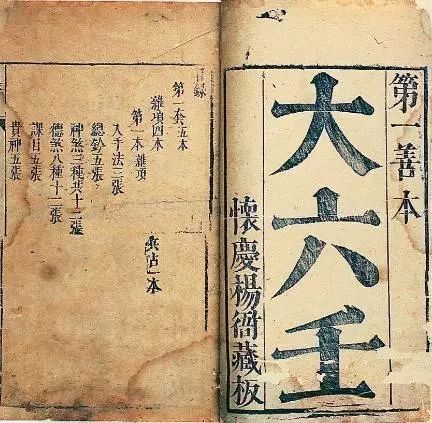 第一善本
大六壬
懷慶楊衙藏板
目錄
第一套五本
雜項四本
第一本雜項
入手法三張
總鈐五張
神煞三種共十二張
德煞八種十二張
課目五張
貴神五張
兵占一本